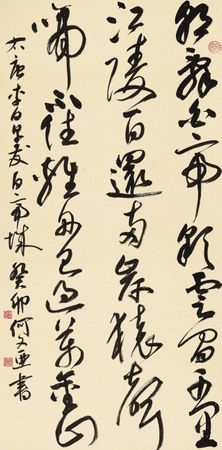 朝辭白帝彩雲間千里
江陵一日還兩岸猿聲
啼不住輕舟已過萬重山
大唐李白早發白帝城癸卯何文亞書